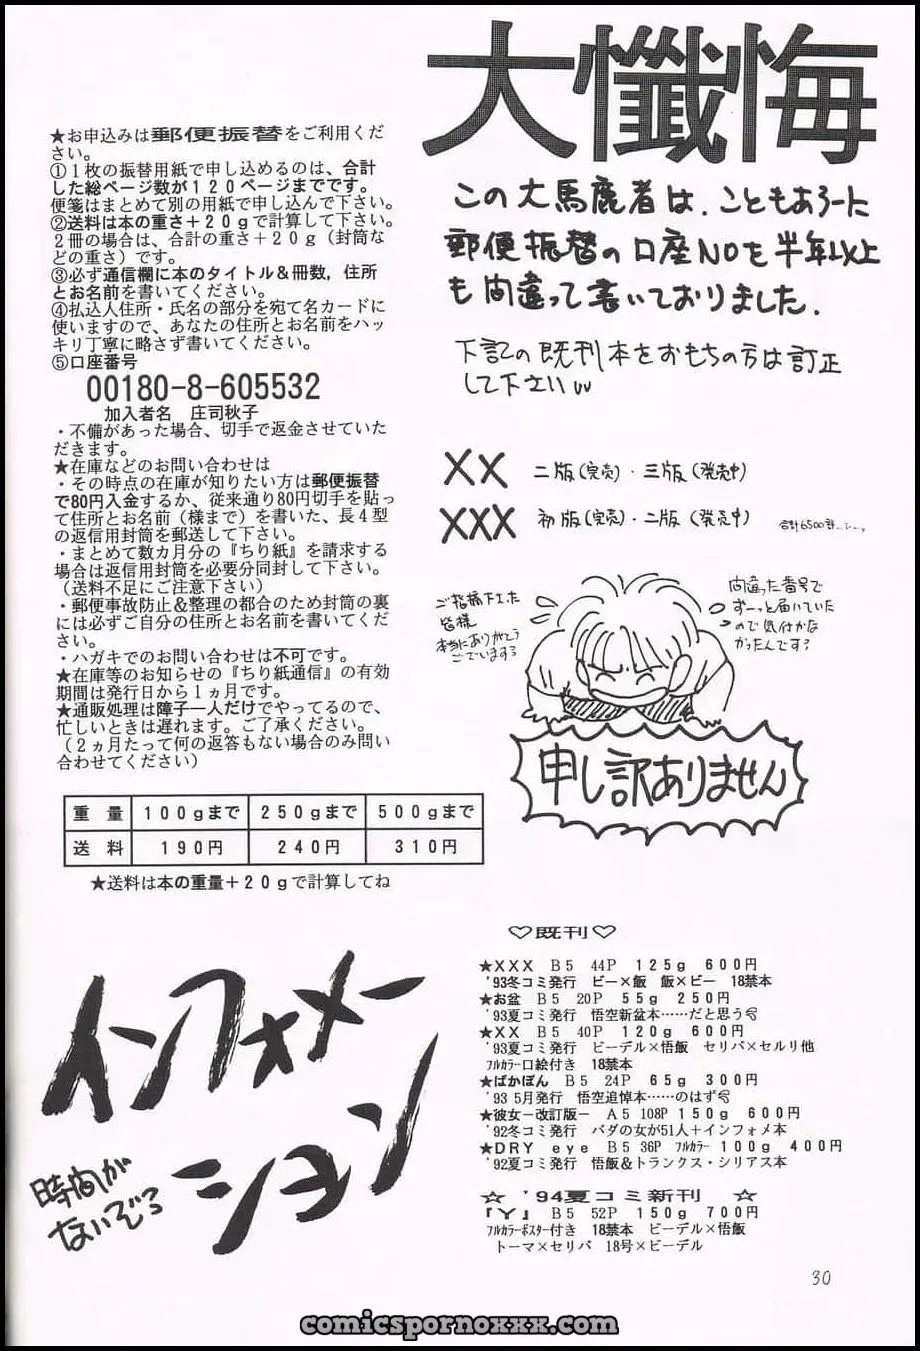 大懺悔
この大馬鹿者は、こともあろーに
郵便振替の口座NOを半年以上
も間違って書いておりました.
下記の既刊本をおもちの方は訂正
して下さい
XX 二版(完売)・三版(発売中)
XXX 初版(完売)・二版(発売中) 合計6500部
ご指摘下さった
皆様
本当にありがとう
ございます
間違った番号で
ずーっと届いていた
ので気付かな
かったんです
申し訳ありません
★お申込みは郵便振替をご利用くだ
さい。
①1枚の振替用紙で申し込めるのは、合計
した総ページ数が120ページまでです。
便箋はまとめて別の用紙で申し込んで下さい。
②送料は本の重さ+20gで計算して下さい。
2冊の場合は、合計の重さ+20g(封筒な
どの重さ)です。
③必ず通信欄に本のタイトル&冊数，住所
とお名前を書いてください。
④払込人住所・氏名の部分を宛て名カードに
使いますので、あなたの住所とお名前をハッ
キリ丁寧に略さず書いてください。
⑤口座番号
00180-8-605532
加入者名 庄司秋子
・不備があった場合、切手で返金させていた
だきます。
★在庫などのお問い合わせは
・その時点の在庫が知りたい方は郵便振替
で80円入金するか、従来通り80円切手を貼っ
て住所とお名前(様まで)を書いた、長4型
の返信用封筒を郵送して下さい。
・まとめて数カ月分の『ちり紙』を請求する
場合は返信用封筒を必要分同封して下さい。
(送料不足にご注意下さい)
・郵便事故防止&整理の都合のため封筒の裏
には必ずご自分の住所とお名前を書いてくだ
さい。
・ハガキでのお問い合わせは不可です。
★在庫等のお知らせの『ちり紙通信』の有効
期間は発行日から1ヵ月です。
★通販処理は障子一人だけでやってるので、
忙しいときは遅れます。ご了承ください。
(2ヵ月たって何の返答もない場合のみ問い
合わせてください)
重量 100gまで 250gまで 500gまで
送料 190円 240円 310円
★送料は本の重量+20gで計算してね
インフォメー
ション
時間が
ないぞ
♡既刊♡
★XXX B5 44P 125g 600円
'93冬コミ発行 ビー×飯 飯×ビー 18禁本
★お盆 B5 20P 55g 250円
'93夏コミ発行 悟空新盆本……だと思う
★XX B5 40P 120g 600円
'93夏コミ発行 ビーデル×悟飯 セリパ×セルリ他
フルカラー口絵付き 18禁本
★ばかぼん B5 24P 65g 300円
'93 5月発行 悟空追悼本……のはず
★彼女－改訂版－ A5 108P 150g 600円
'92冬コミ発行 バダの女が51人+インフォメ本
★DRY eye B5 36P フルカラー 100g 400円
'92夏コミ発行 悟飯&トランクス・シリアス本
☆ '94夏コミ新刊 ☆
『Y』 B5 52P 150g 700円
フルカラーポスター付き 18禁本 ビーデル×悟飯
トーマ×セリパ 18号×ビーデル
30
comicspornoxxx.com